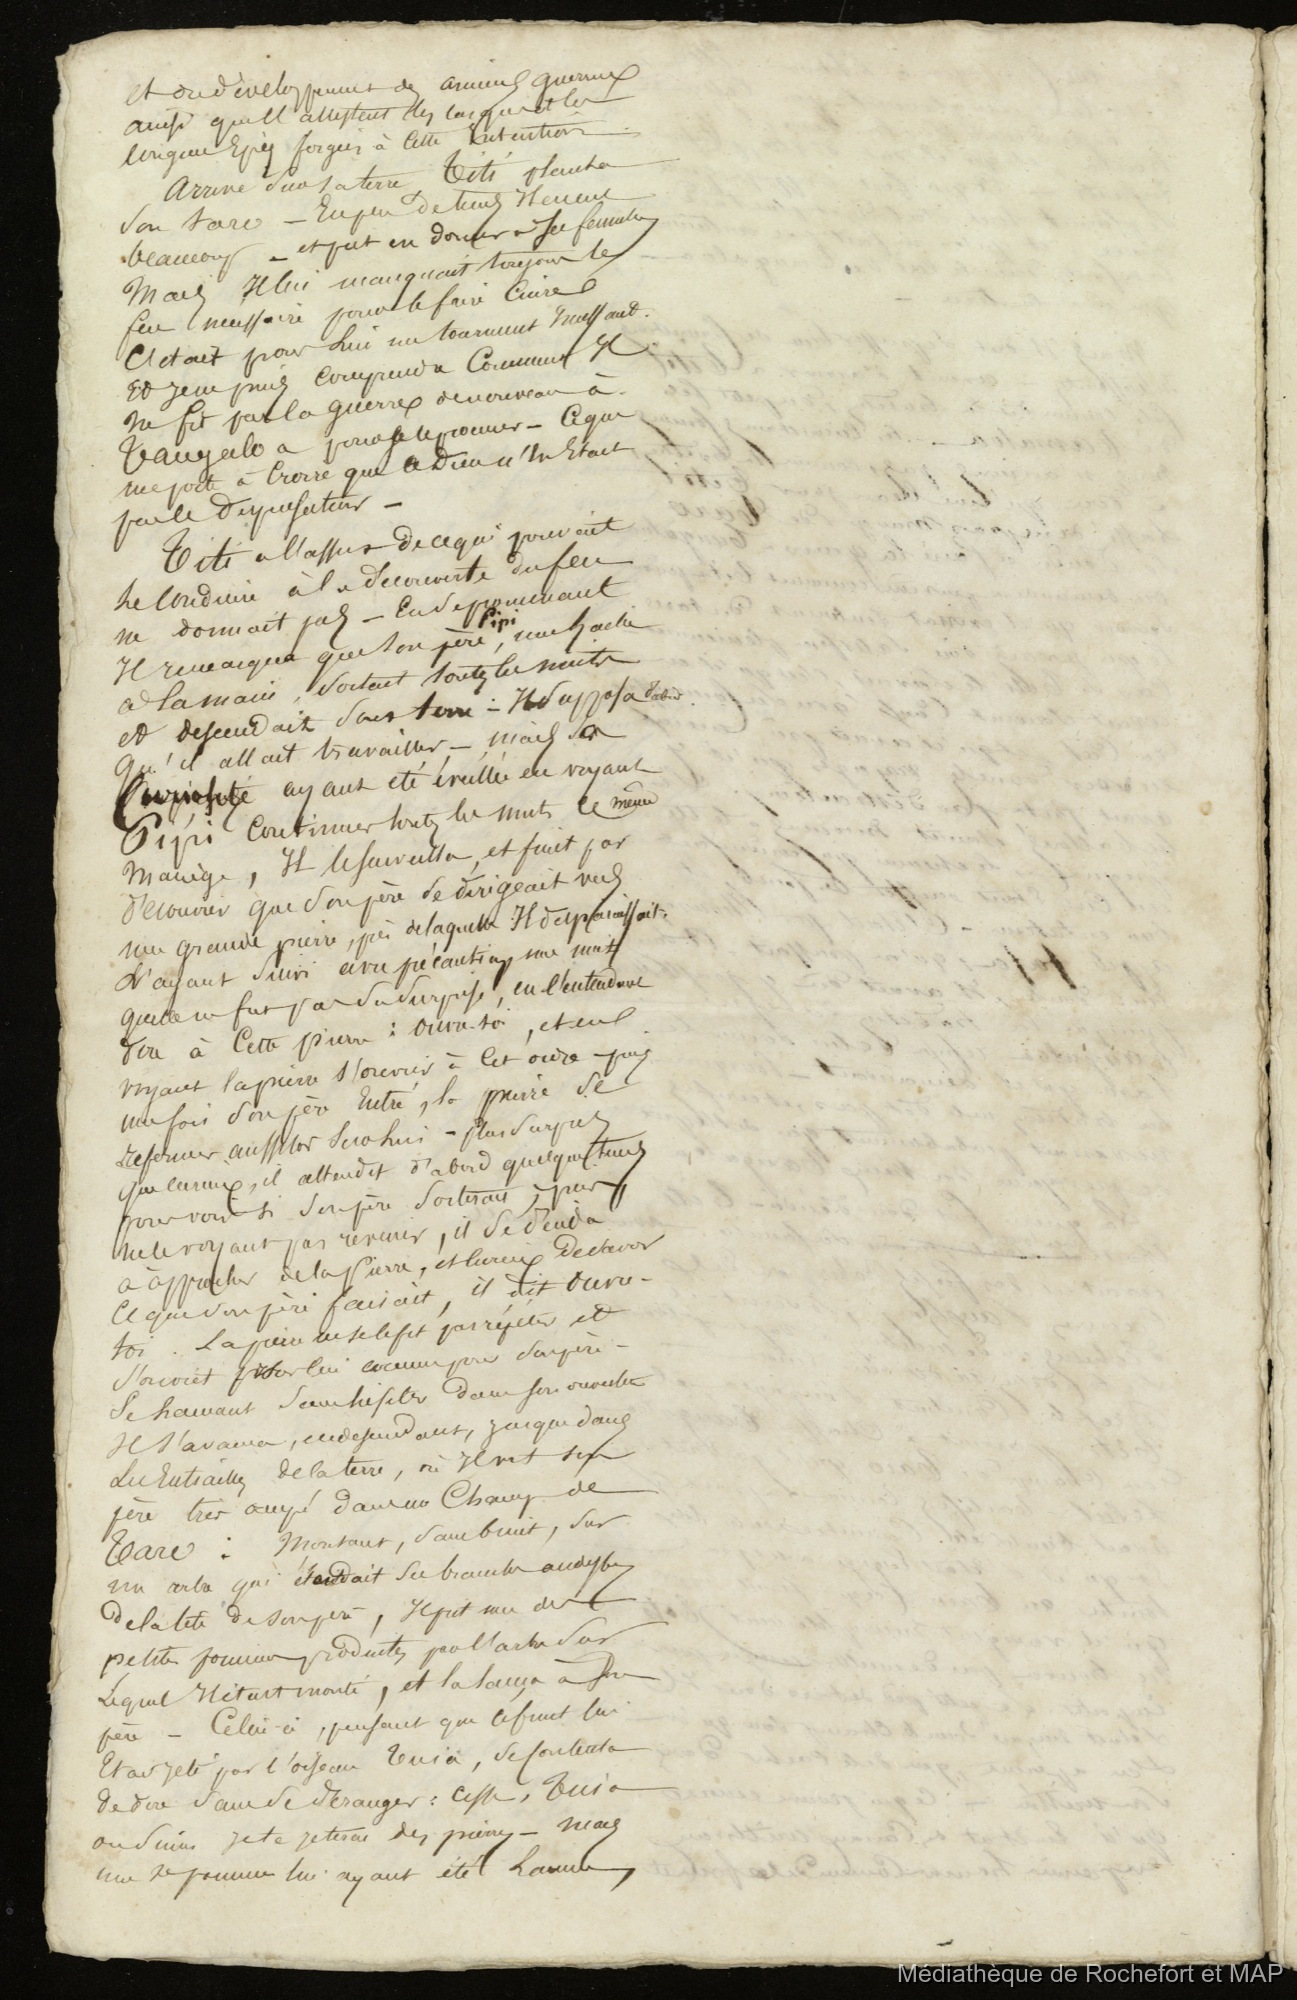 et du développement des anciens guerriers
ainsi que l'attestent les casques et les
longues Epées forgées à Cette Intention.
Arrivé sur sa terre Titi planta
son taro – En peu de temps Il en eut
beaucoup – et put en donner à ses femmes
Mais Il lui manquait toujours le
feu nécessaire pour le faire Cuire
C'était pour lui un tourment Incessant.
Et je ne puis comprendre Comment Il
ne fit pas la guerre de nouveau à
Tangalo a pour se le procurer – Ce qui
me porte à Croire que ce Dieu n'en Etait
pas le Dispensateur –
Titi à l'affut de ce qui pouvait
le Conduire à la découverte du feu
ne dormait pas – En se promenant
Il remarqua que son père, Pipi une hache
à la main, sortait toutes les nuits
et descendait sous terre – Il supposa d'abord
qu'il allait travailler – mais sa
Curiosité ayant été éveillée en voyant
Pipi Continuer toutes les nuits ce même
Manège, Il le surveilla, et finit par
découvrir que son père se dirigeait vers
une grande pierre, près de laquelle Il disparaissait.
L'ayant suivi avec précaution une nuit
quelle ne fut pas sa surprise, en l'entendant
dire à Cette pierre : ouvre-toi, et en
voyant la pierre s'ouvrir à Cet ordre – puis
une fois son père Entré, la pierre se
refermer aussitôt sur lui – Plus surpris
que curieux, il attendit d'abord quelque temps
pour voir si son père sortirait, puis
ne le voyant pas revenir, il se décida
à approcher de la Pierre, et curieux de savoir
Ce que son père faisait, il dit ouvre-
toi. La pierre ne se le fit pas répéter et
s'ouvrit pour lui comme pour son père –
Se hasardant sans hésiter dans son ouverture
Il s'avança, en descendant, jusque dans
les Entrailles de la terre, où Il vit son
père très occupé dans un Champ de
Taro : Montant, sans bruit, sur
un arbre qui étendait ses branches au dessus
de la tête de son père, Il prit une des
petites pommes produites par l'arbre sur
lequel Il était monté, et la lança à son
père – Celui-ci, pensant que ce fruit lui
Etait jeté par l'oiseau Tuia, se contenta
de dire sans se déranger : cesse, Tuia
ou sinon je te jeterai des pierres – mais
une 2e pomme lui ayant été lancée,
Médiathèque de Rochefort et MAP